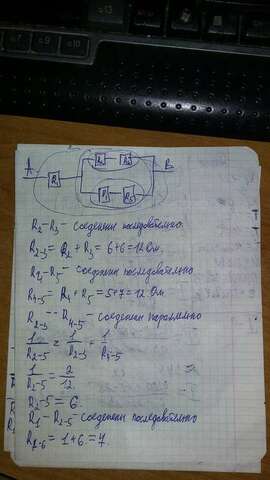 A
R₂
R₃
B
R₁
R₄
R₅
R₂ - R₃ - соеденены последовательно.
R₂₋₃ = R₂ + R₃ = 6+6=12 Ом.
R₄ - R₅ - соеденены последовательно
R₄₋₅ = R₄ + R₅ = 5+7=12 Ом
R₂₋₃ - R₄₋₅ - соеденены параллельно
1/R₂₋₅ = 1/R₂₋₃ + 1/R₄₋₅
1/R₂₋₅ = 2/12
R₂₋₅ = 6.
R₁ - R₂₋₅ соеденены последовательно
= 1+6 = 7.